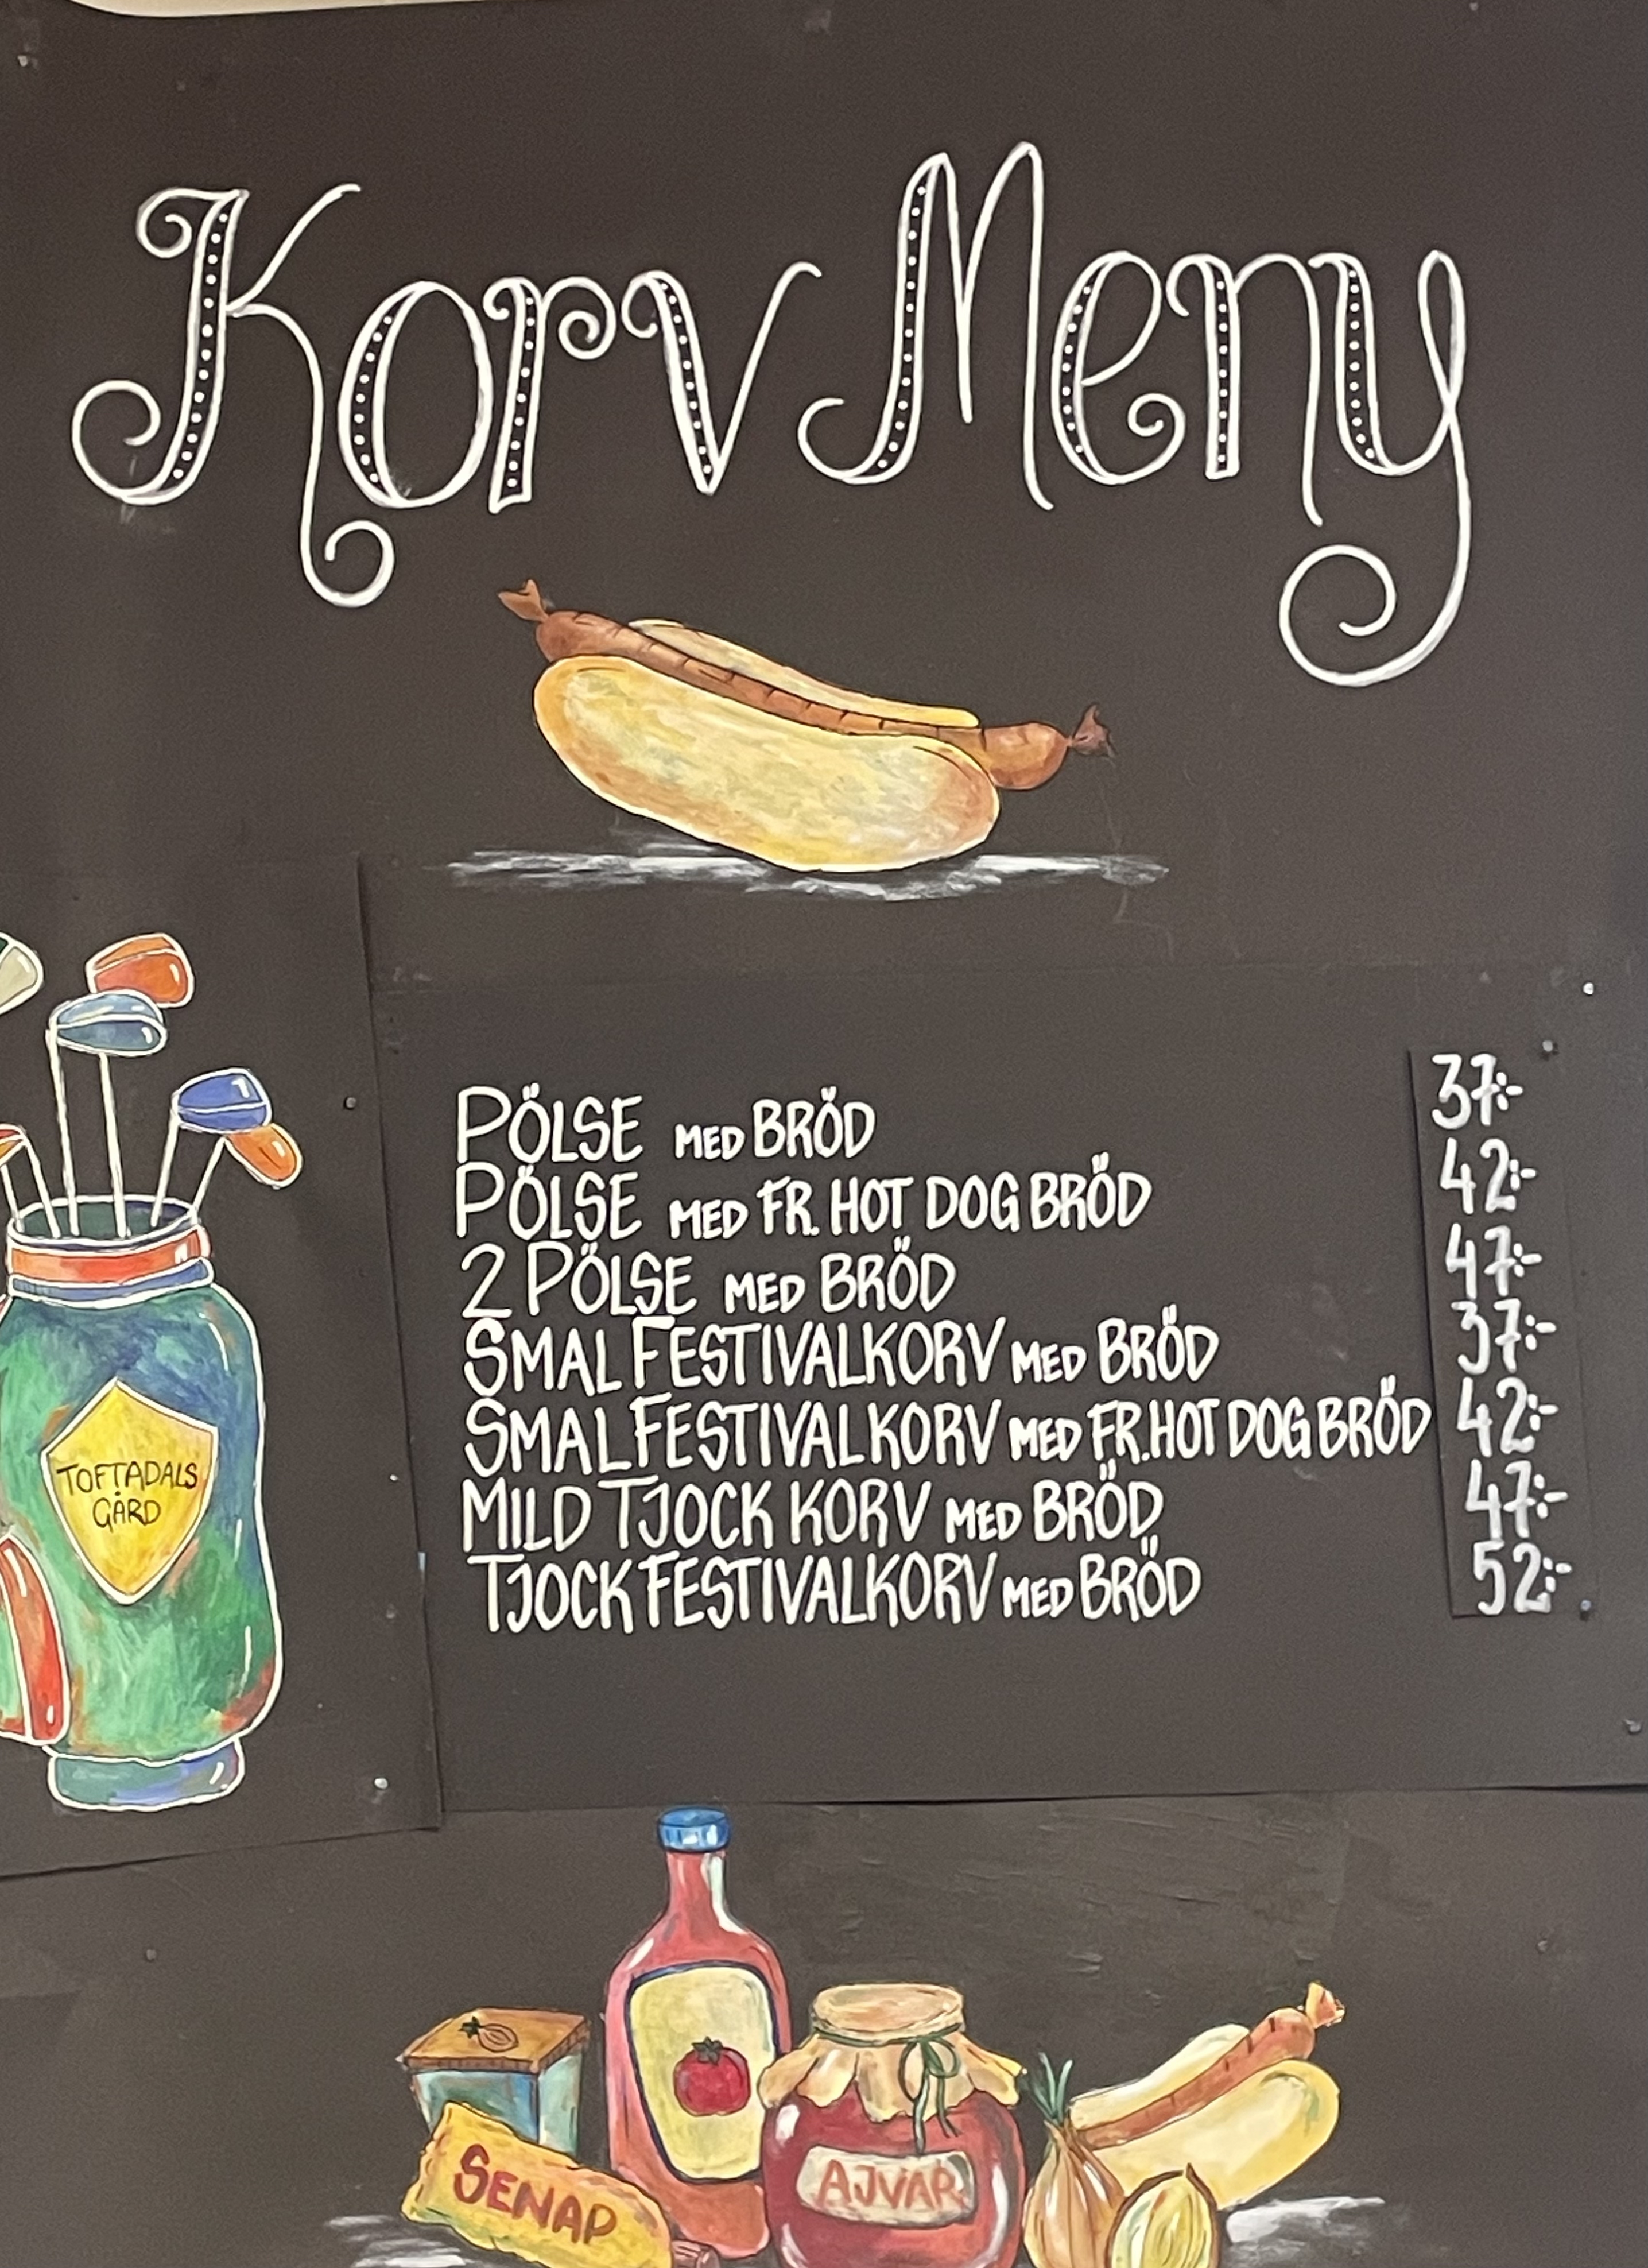 Korv Meny
PÖLSE MED BRÖD 37:-
PÖLSE MED FR. HOT DOG BRÖD 42:-
2 PÖLSE MED BRÖD 47:-
SMAL FESTIVALKORV MED BRÖD 37:-
SMAL FESTIVALKORV MED FR. HOT DOG BRÖD 42:-
MILD TJOCK KORV MED BRÖD 47:-
TJOCK FESTIVALKORV MED BRÖD 52:-
TOFTADALS
GÅRD
SENAP
AJVAR